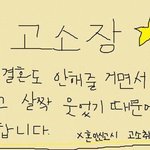 고소장
결혼도 안해줄 거면서
고 살짝 웃었기 때문에
합니다.
x혼인신시 고소취